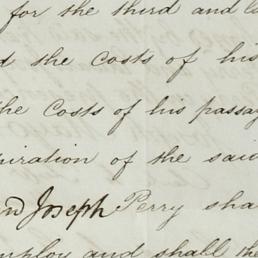 for the third and
the costs of his
the costs of his passag
piration of the said
Joseph Perry sha
mploy and shall the